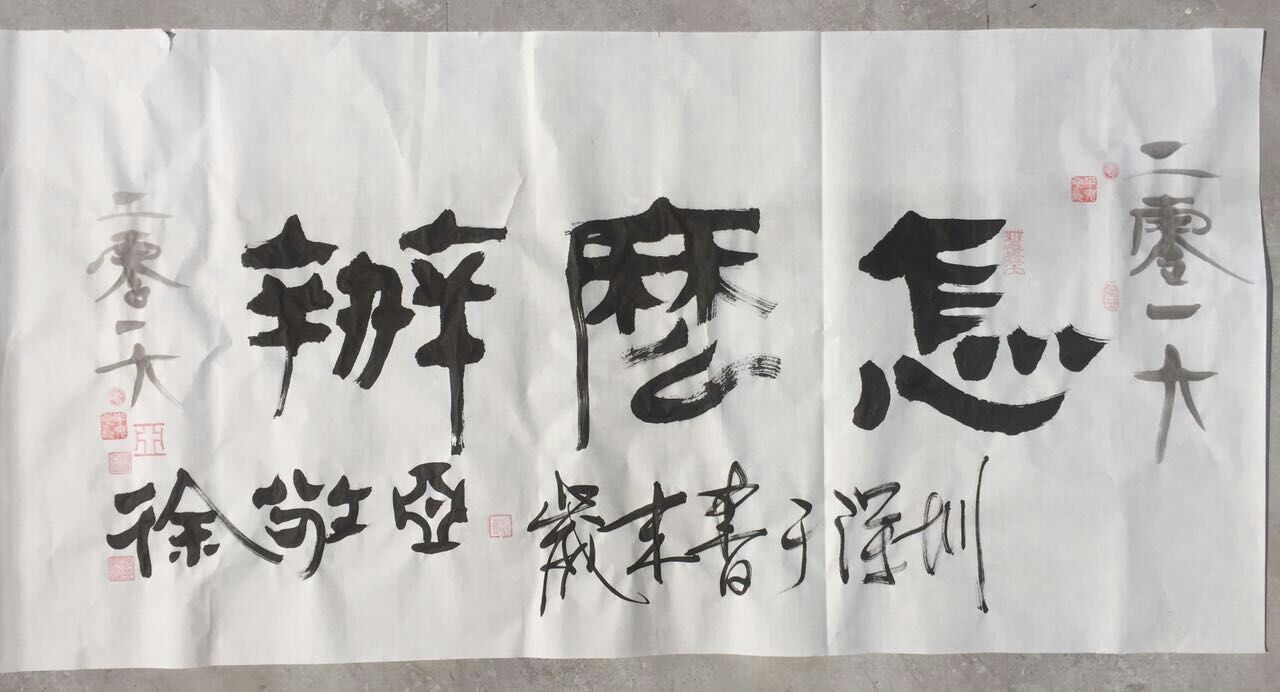 二零一六
怎麼辦
歲末書于深圳
徐敬亞
二零一六